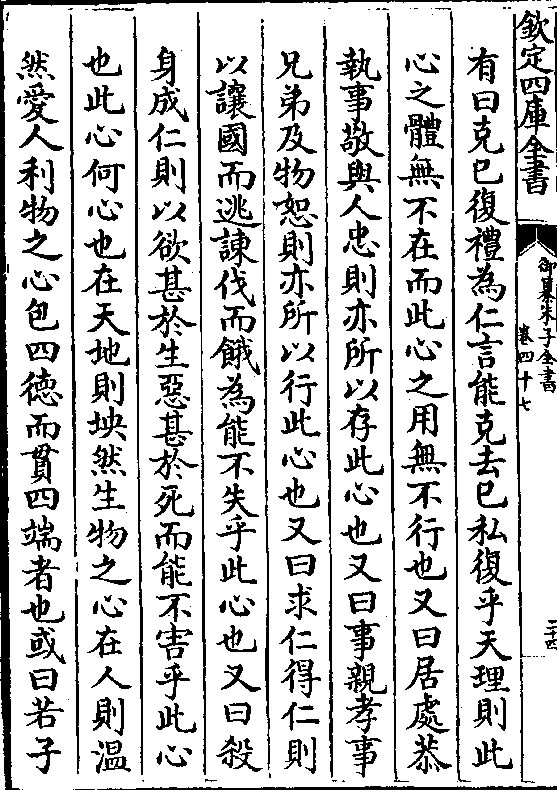 欽定四庫全書
御纂朱子全書
卷四十七
二十四
有曰克已復禮為仁言能克去已私復乎天理則此
心之體無不在而此心之用無不行也又曰居處恭
執事敬與人忠則亦所以存此心也又曰事親孝事
兄弟及物恕則亦所以行此心也又曰求仁得仁則
以讓國而逃諫伐而餓為能不失乎此心也又曰殺
身成仁則以欲甚於生惡甚於死而能不害乎此心
也此心何心也在天地則坱然生物之心在人則温
然愛人利物之心包四徳而貫四端者也或曰若子